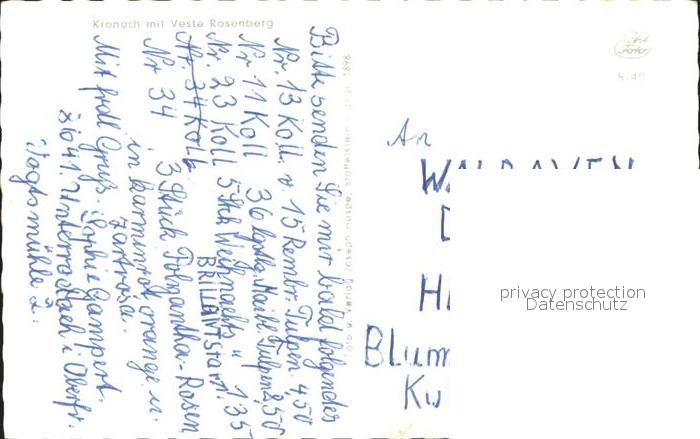 Kronach mit Veste Rosenberg
Bitte senden Sie mir bald folgendes
Nr. 13 Koll. v. 15 Rembr. Tulpen 4,50
Nr 11 Koll 36 Tulpen 8,50
Nr 23 Koll 5 Stk Weihnachts u 1.35
BRILLIANTSTARN.
Nr. 34 Koll
Nr 34 3 Stück Polyantha-Rosen
in karminrot orange u.
zartrosa.
Mit frdl Grus. Sophie Gampert.
8641. Unterrodach i. Oberfr.
Vogtsmühle 2.
An
Blum
Ku
privacy protection
Datenschutz